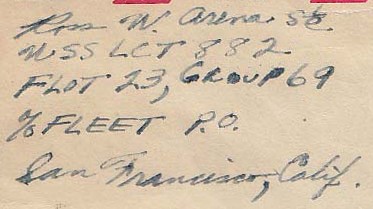 Ross W. Arena S½
USS LCT 882
FLOT 23, GROUP 69
℅ FLEET P.O.
San Francisco, Calif.